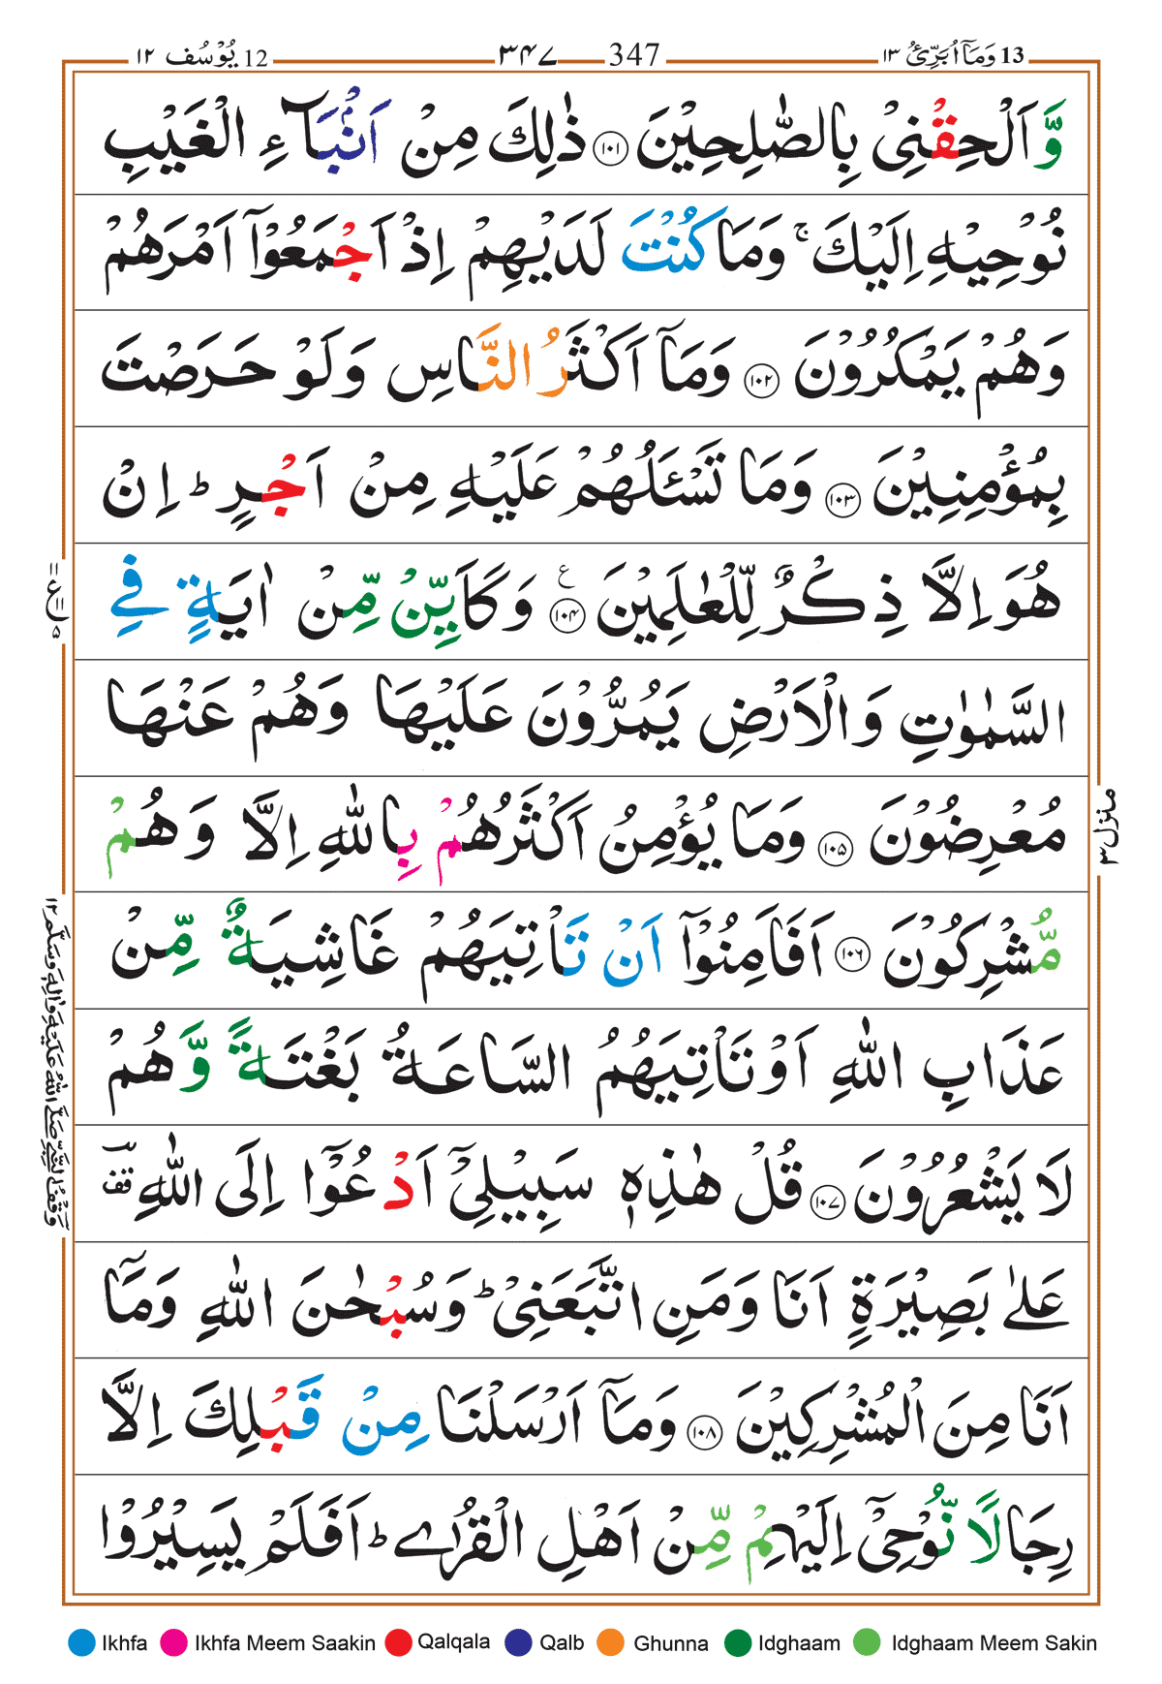 13 وَمَآ اُبَرِّئُ ١٣ 347 ٣٤٧ 12 يُوْسُف ١٢
وَّ اَلْحِقْنِیْ بِالصّٰلِحِیْنَ ﴿۱۰۱﴾ ذٰلِكَ مِنْ اَنْۢبَآءِ الْغَیْبِ
نُوْحِیْهِ اِلَیْكَ ۚ وَمَا كُنْتَ لَدَیْهِمْ اِذْ اَجْمَعُوْۤا اَمْرَهُمْ
وَهُمْ یَمْكُرُوْنَ ﴿۱۰۲﴾ وَمَاۤ اَكْثَرُ النَّاسِ وَلَوْ حَرَصْتَ
بِمُؤْمِنِیْنَ ﴿۱۰۳﴾ وَمَا تَسْـَٔلُهُمْ عَلَیْهِ مِنْ اَجْرٍ ؕ اِنْ
هُوَ اِلَّا ذِكْرٌ لِّلْعٰلَمِیْنَ ﴿۱۰۴﴾ ع وَكَاَیِّنْ مِّنْ اٰیَةٍ فِی
السَّمٰوٰتِ وَالْاَرْضِ یَمُرُّوْنَ عَلَیْهَا وَهُمْ عَنْهَا
مُعْرِضُوْنَ ﴿۱۰۵﴾ وَمَا یُؤْمِنُ اَكْثَرُهُمْ بِاللّٰهِ اِلَّا وَهُمْ
مُّشْرِكُوْنَ ﴿۱۰۶﴾ اَفَاَمِنُوْۤا اَنْ تَاْتِیَهُمْ غَاشِیَةٌ مِّنْ
عَذَابِ اللّٰهِ اَوْ تَاْتِیَهُمُ السَّاعَةُ بَغْتَةً وَّهُمْ
لَا یَشْعُرُوْنَ ﴿۱۰۷﴾ قُلْ هٰذِهٖ سَبِیْلِیْۤ اَدْعُوْۤا اِلَی اللّٰهِ ؔ قف
عَلٰی بَصِیْرَةٍ اَنَا وَمَنِ اتَّبَعَنِیْ ؕ وَسُبْحٰنَ اللّٰهِ وَمَاۤ
اَنَا مِنَ الْمُشْرِكِیْنَ ﴿۱۰۸﴾ وَمَاۤ اَرْسَلْنَا مِنْ قَبْلِكَ اِلَّا
رِجَالًا نُّوْحِیْۤ اِلَیْهِمْ مِّنْ اَهْلِ الْقُرٰی ؕ اَفَلَمْ یَسِیْرُوْا
منزل ٣
وَقْفُ النَّبِیِّ صَلَّی اللّٰهُ عَلَیْهِ وَاٰلِهٖ وَسَلَّمَ ١٢
Ikhfa Ikhfa Meem Saakin Qalqala Qalb Ghunna Idghaam Idghaam Meem Sakin